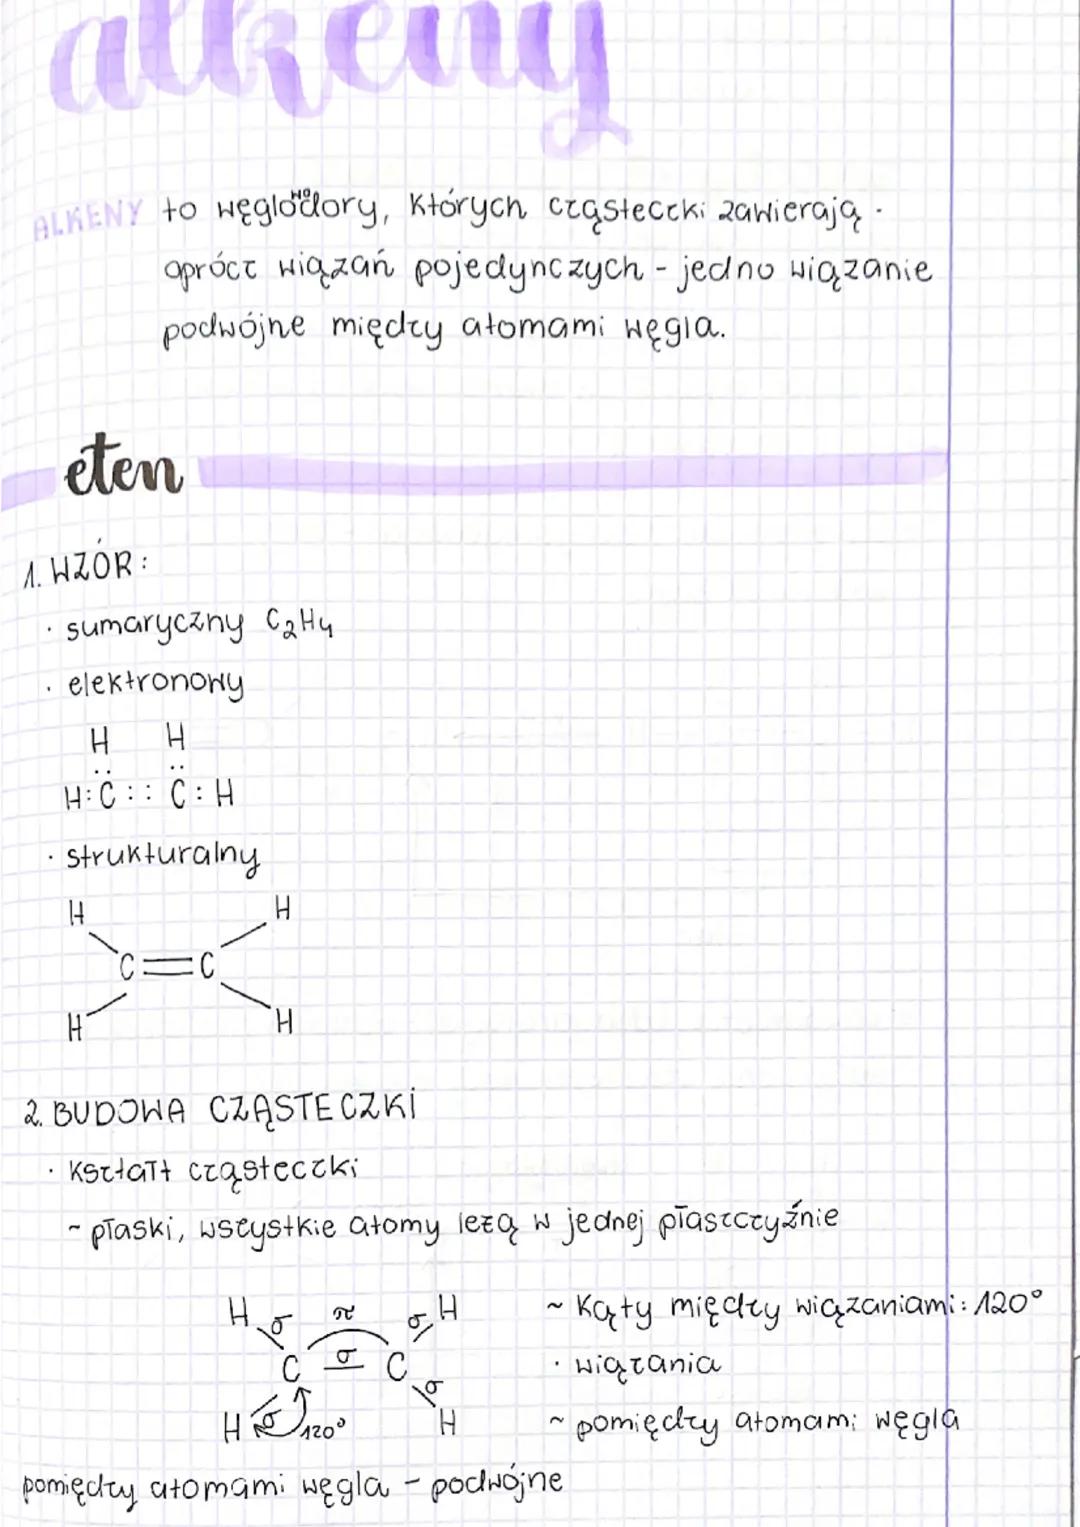 alkeny
ALKENY to węglowodory, których cząsteczki zawierają -
oprócz wiązań pojedynczych - jedno wiązanie
podwójne między atomami węgla.
eten
1. WZÓR:
· sumaryczny C₂H₄
· elektronowy
H H
.. ..
H:C :: C:H
· strukturalny
H H
C=C
H H
2. BUDOWA CZĄSTECZKI
· kształt cząsteczki
~ płaski, wszystkie atomy leżą w jednej płaszczyźnie
H σ π σ H
C σ C
H σ 120° σ H
~ kąty między wiązaniami: 120°
· wiązania
~ pomiędzy atomami węgla
pomiędzy atomami węgla - podwójne